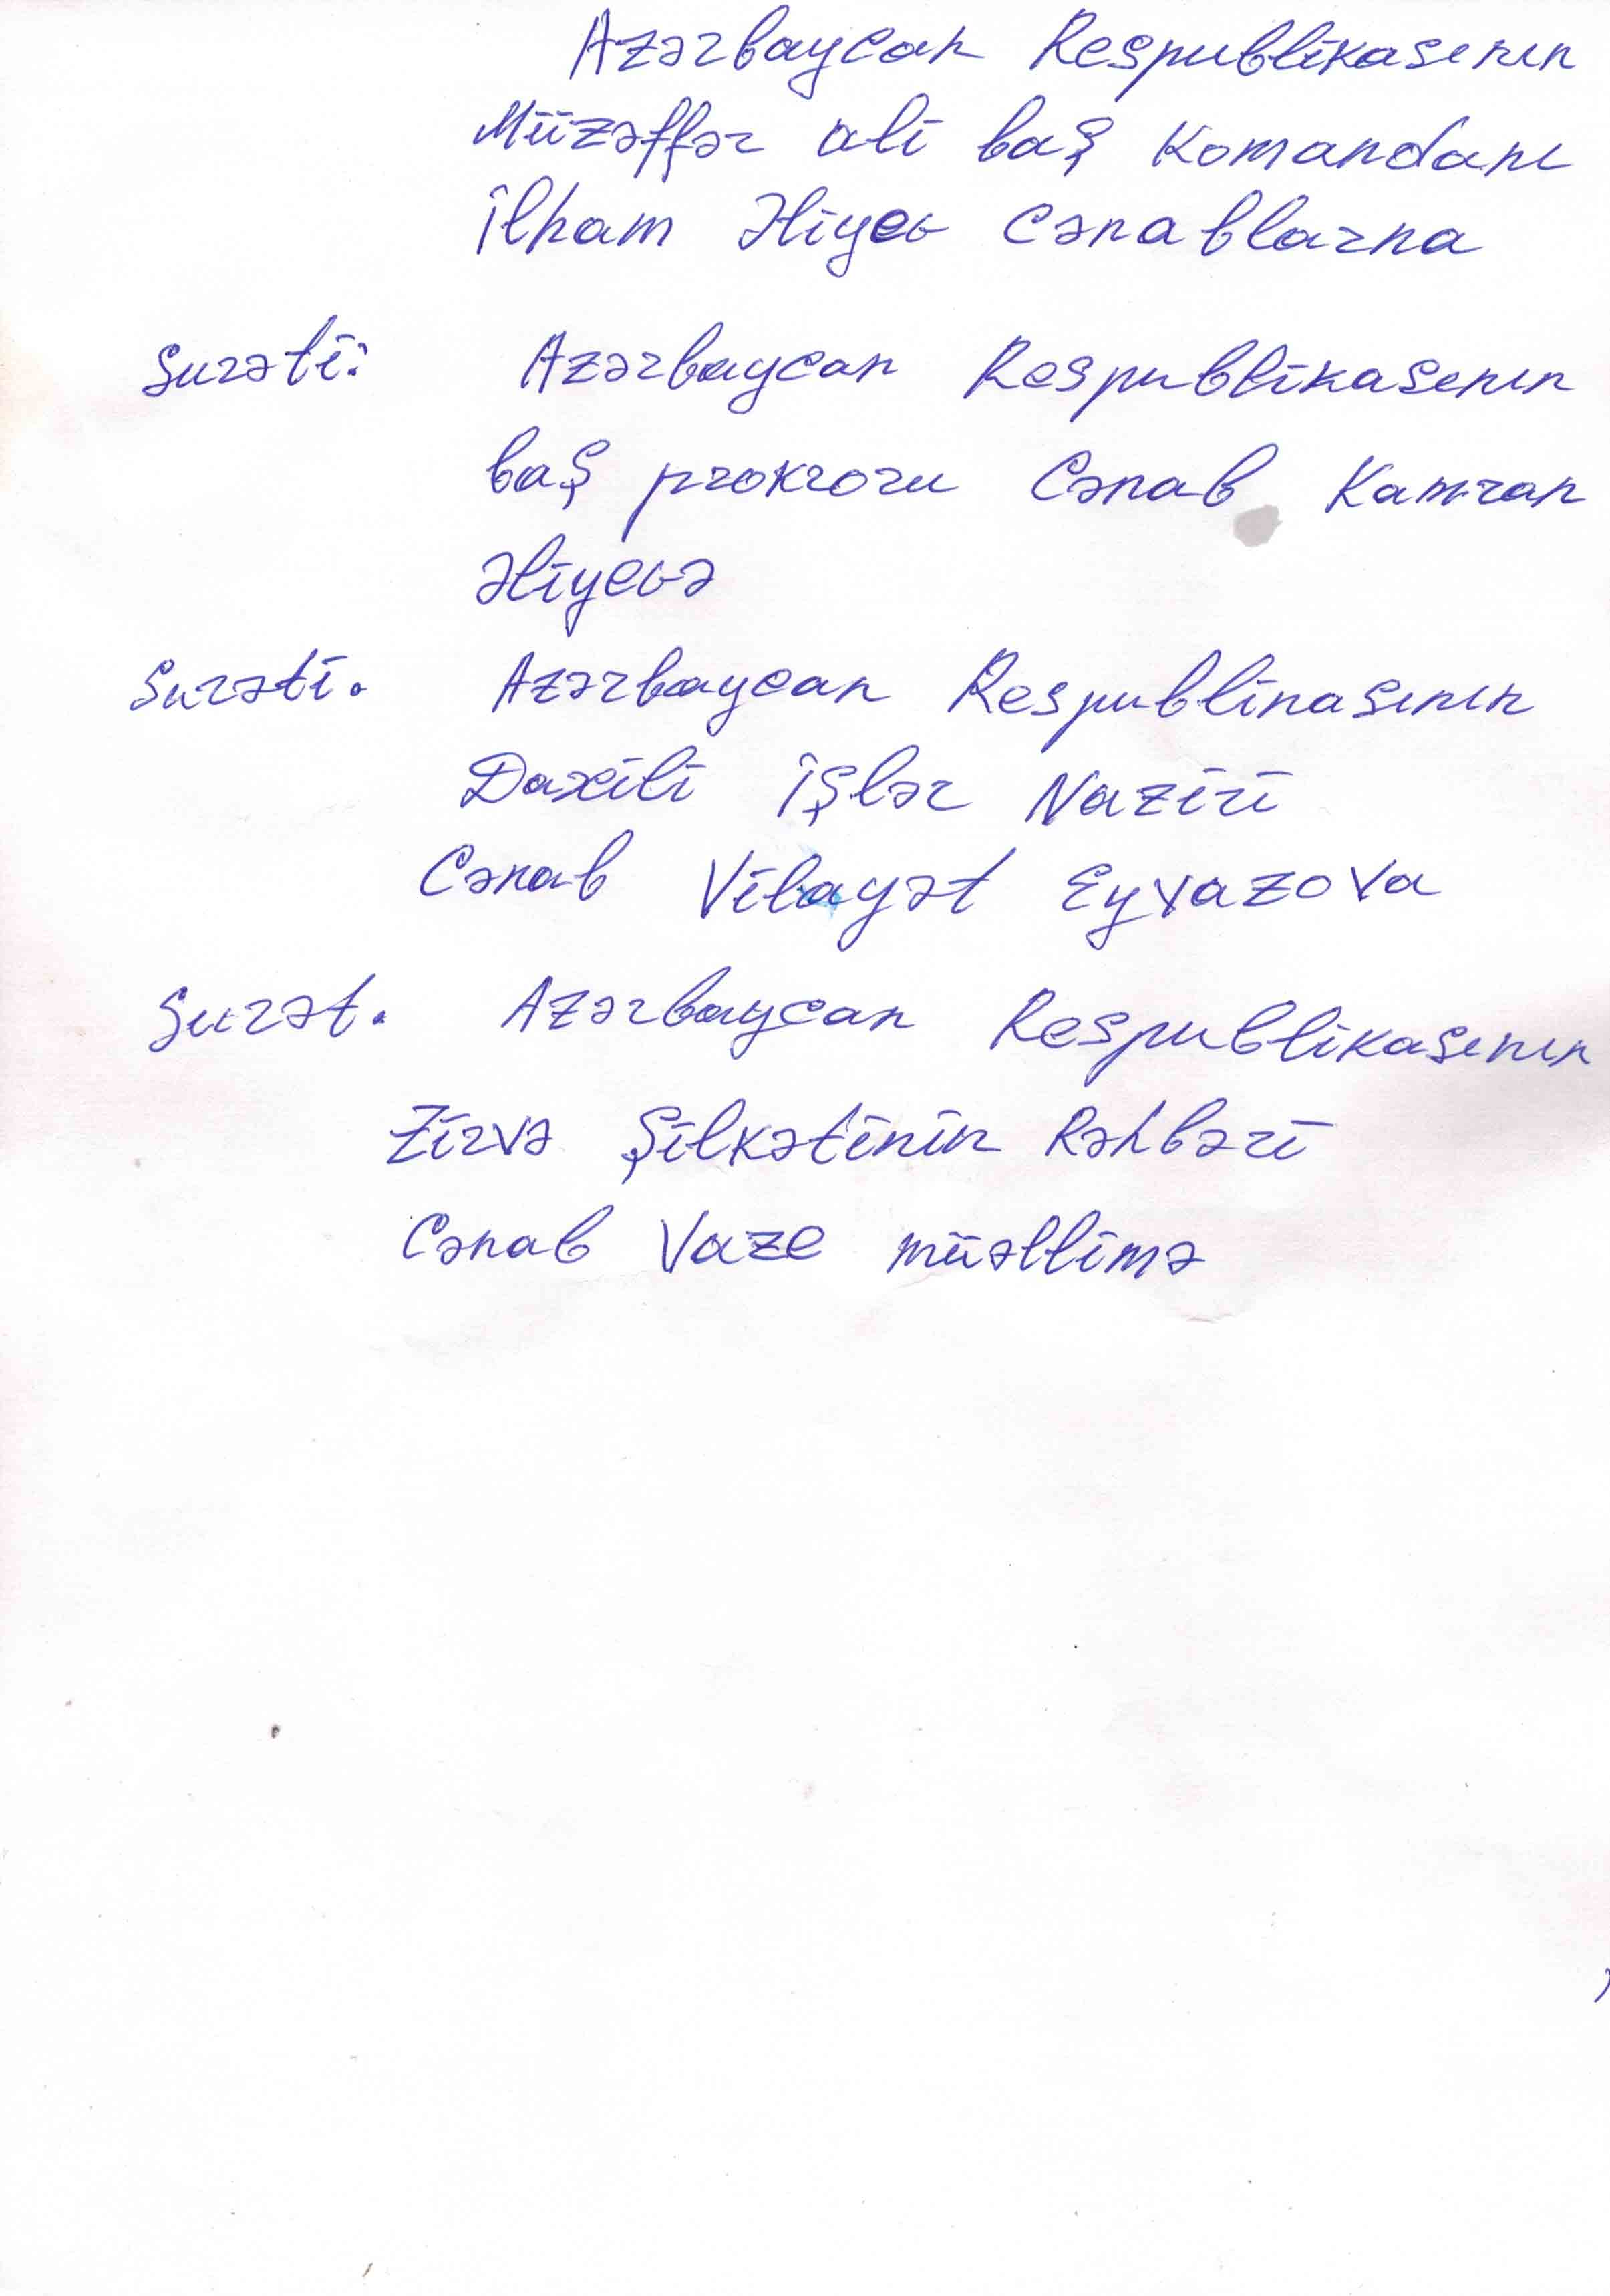 Azərbaycan Respublikasının
Müzəffər ali baş Komandanı
İlham Əliyev Cənablarna
Surəti: Azərbaycan Respublikasının
baş prokroru Cənab Kamran
Əliyevə
Surəti. Azərbaycan Respublinasının
Daxili işlər Naziri
Cənab Vilayət Eyvazova
Surət. Azərbaycan Respublikasının
Zirvə Şilkətinin Rəhbəri
Cənab Vaze müəllimə